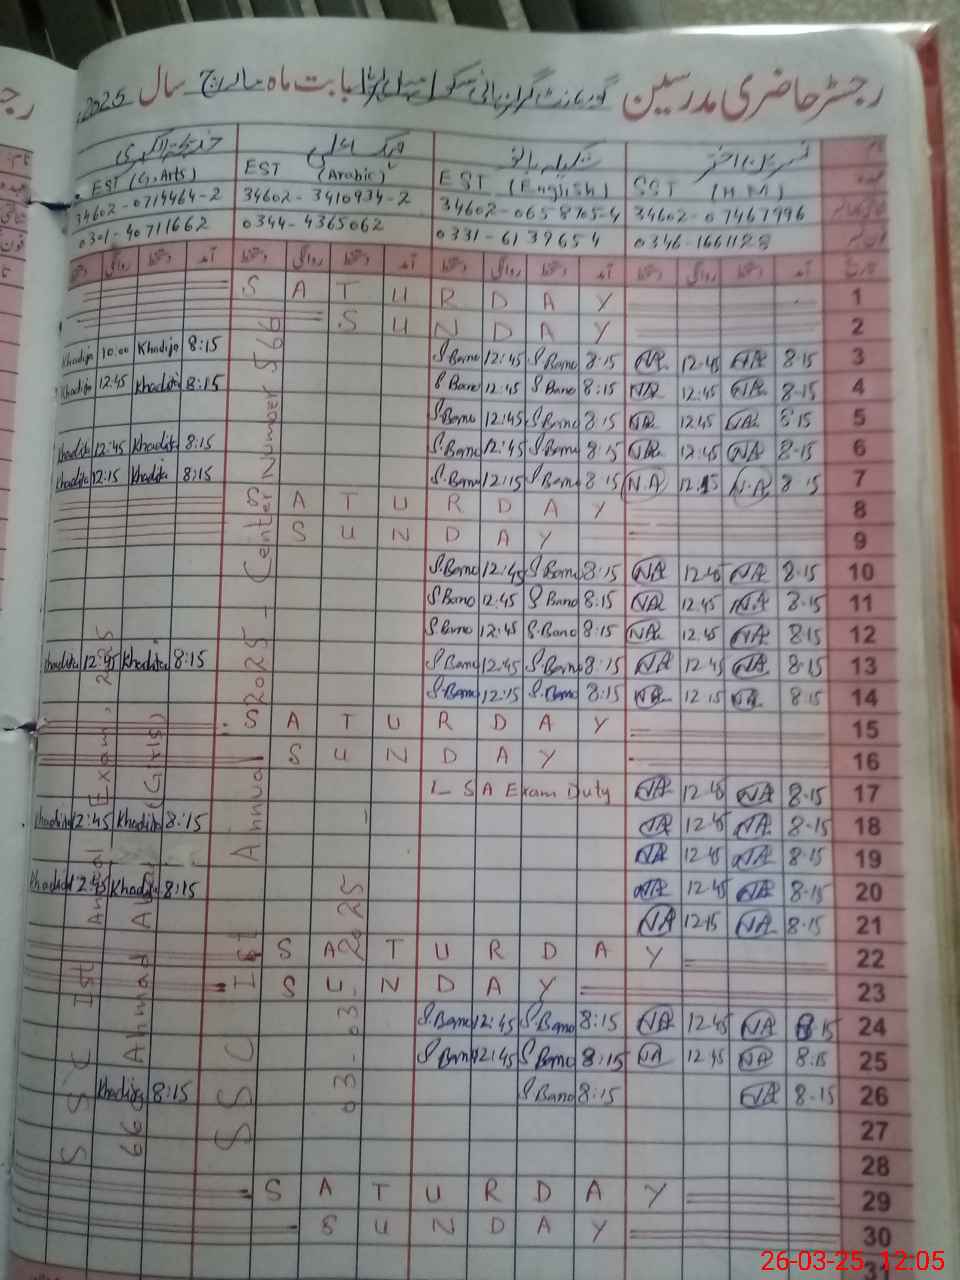 رجسٹر حاضری مدرسین گورنمنٹ گرلز ہائی سکول بابت ماہ مارچ سال 2025
EST (G.Arts) EST (Arabic) EST (English) SST (H.M)
34602-0714464-2 34602-3410934-2 34602-0658705-4 34602-07467996
0301-40711662 0344-4365062 0331-6139654 0346-1661128
دستخط روانگی دستخط آمد دستخط روانگی دستخط آمد دستخط روانگی دستخط آمد دستخط روانگی دستخط آمد تاریخ
SATURDAY 1
SUNDAY 2
Khadija 10:00 Khadija 8:15 S.Bano 12:45 S.Bano 8:15 NA 12.45 NA 8.15 3
Khadija 12:45 Khadija 8:15 S Bano 12:45 S Bano 8:15 NA 12.45 NA 8.15 4
S.Bano 12:45 S.Bano 8:15 NA 12.45 NA 8.15 5
Khadija 12:45 Khadija 8:15 S.Bano 12:45 S.Bano 8:15 NA 12.45 NA 8.15 6
Khadija 12:15 Khadija 8:15 S.Bano 12:15 S.Bano 8:15 N.A 12.15 N.A 8.15 7
SATURDAY 8
SUNDAY 9
S.Bano 12:45 S.Bano 8:15 NA 12.45 NA 8.15 10
S Bano 12:45 S Bano 8:15 NA 12.45 NA 8.15 11
S.Bano 12:45 S.Bano 8:15 NA 12.45 NA 8.15 12
Khadija 12:45 Khadija 8:15 S.Bano 12:45 S.Bano 8:15 NA 12.45 NA 8.15 13
S.Bano 12:15 S.Bano 8:15 NA 12.15 NA 8.15 14
SATURDAY 15
SUNDAY 16
LSA Exam Duty NA 12.45 NA 8.15 17
Khadija 12:45 Khadija 8:15 NA 12.45 NA 8.15 18
NA 12.45 NA 8.15 19
Khadija 12:45 Khadija 8:15 NA 12.45 NA 8.15 20
NA 12.15 NA 8.15 21
SATURDAY 22
SUNDAY 23
S.Bano 12:45 S.Bano 8:15 NA 12.45 NA 8.15 24
S Bano 12:45 S Bano 8:15 NA 12.45 NA 8.15 25
Khadija 8:15 S Bano 8:15 NA 8.15 26
27
28
SATURDAY 29
SUNDAY 30
31
SSC Ist Annual Exam, 2025
66 Ahmad (Girls)
SSC Ist Annual 2025 - Center Number 566
03-03-2025
26-03-25 12:05